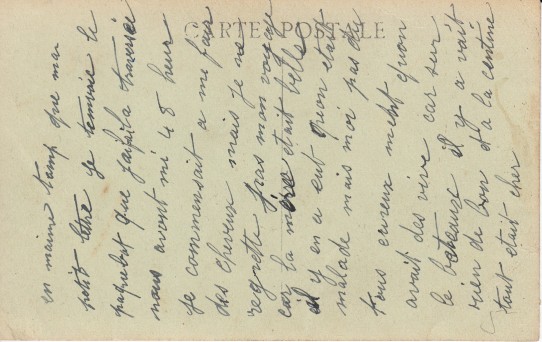 CARTE POSTALE
en maime temp que ma
petit letre je tanvoie le
paquebot que jai fai la traversei
nous avont mi 48 heur
je commensait a me fair
des cheveux mais je ne
regrette pas mon voyage
car la mère etait belle
il y en a eut qui on etait
malade mais moi pas du
tous eureux micht quon
avait des vive car sur
le bateaux il y a vait
rien de bon et a la cantine
tout etait cher